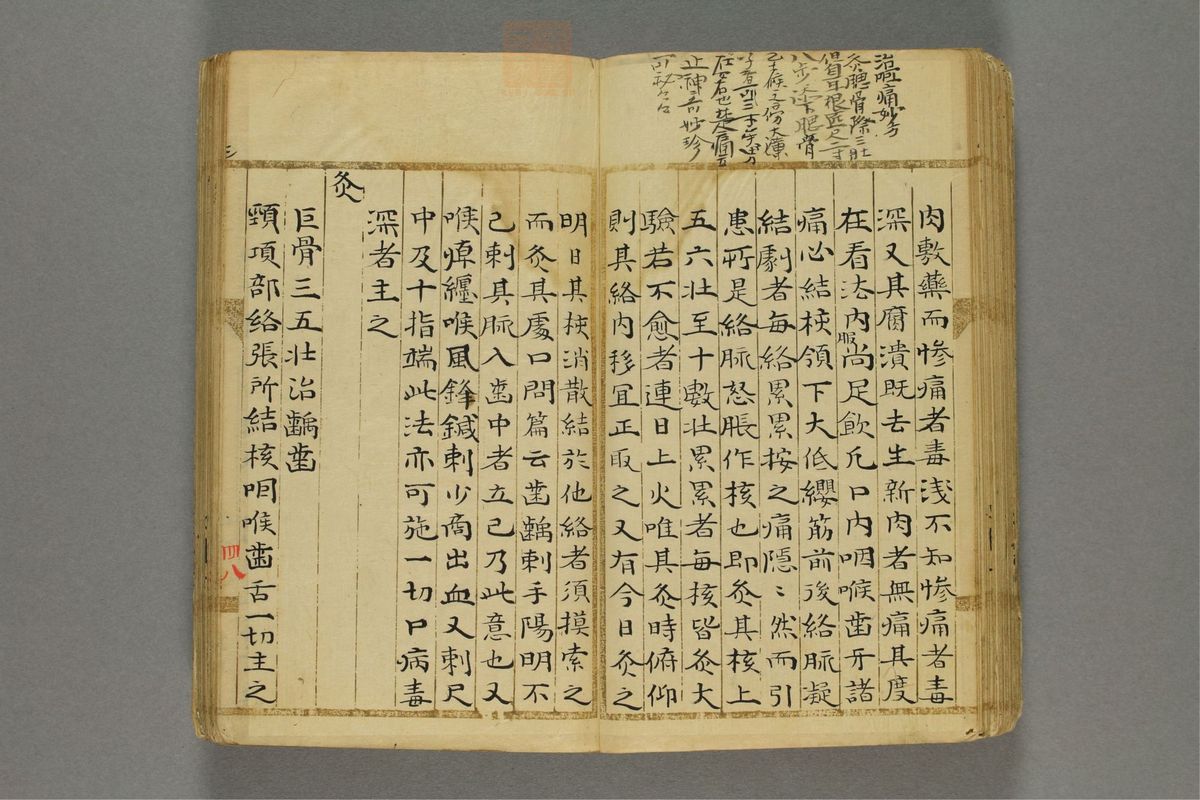 治咽痛妙方
灸腮骨際三壯
肉敷藥而慘痛者毒淺不知慘痛者毒
深又其腐潰既去生新肉者無痛其度
在看法內服尚足飲凡口內咽喉齒牙諸
痛必結核領下大低纓筋前後絡脈凝
結劇者每絡累累按之痛隱〻然而引
患所是絡脈怒脹作核也即灸其核上
五六壯至十數壯累累者每核皆灸大
驗若不愈者連日上火唯其灸時俯仰
則其絡內移宜正取之又有今日灸之
明日其核消散結於他絡者須摸索之
而灸其處口問篇云齒齲刺手陽明不
已刺其脈入齒中者立已乃此意也又
喉痺纏喉風鋒鍼刺少商出血又刺尺
中及十指端此法亦可施一切口病毒
深者主之
灸
巨骨三五壯治齲齒
頸項部絡張所結核咽喉齒舌一切主之
四八